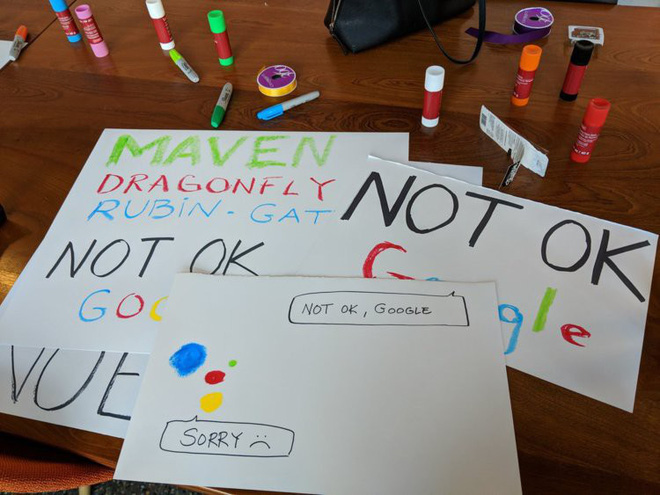 MAVEN
DRAGONFLY
RUBIN - GAT
NOT OK
NOT OK
Google
NOT OK, GOOGLE
SORRY